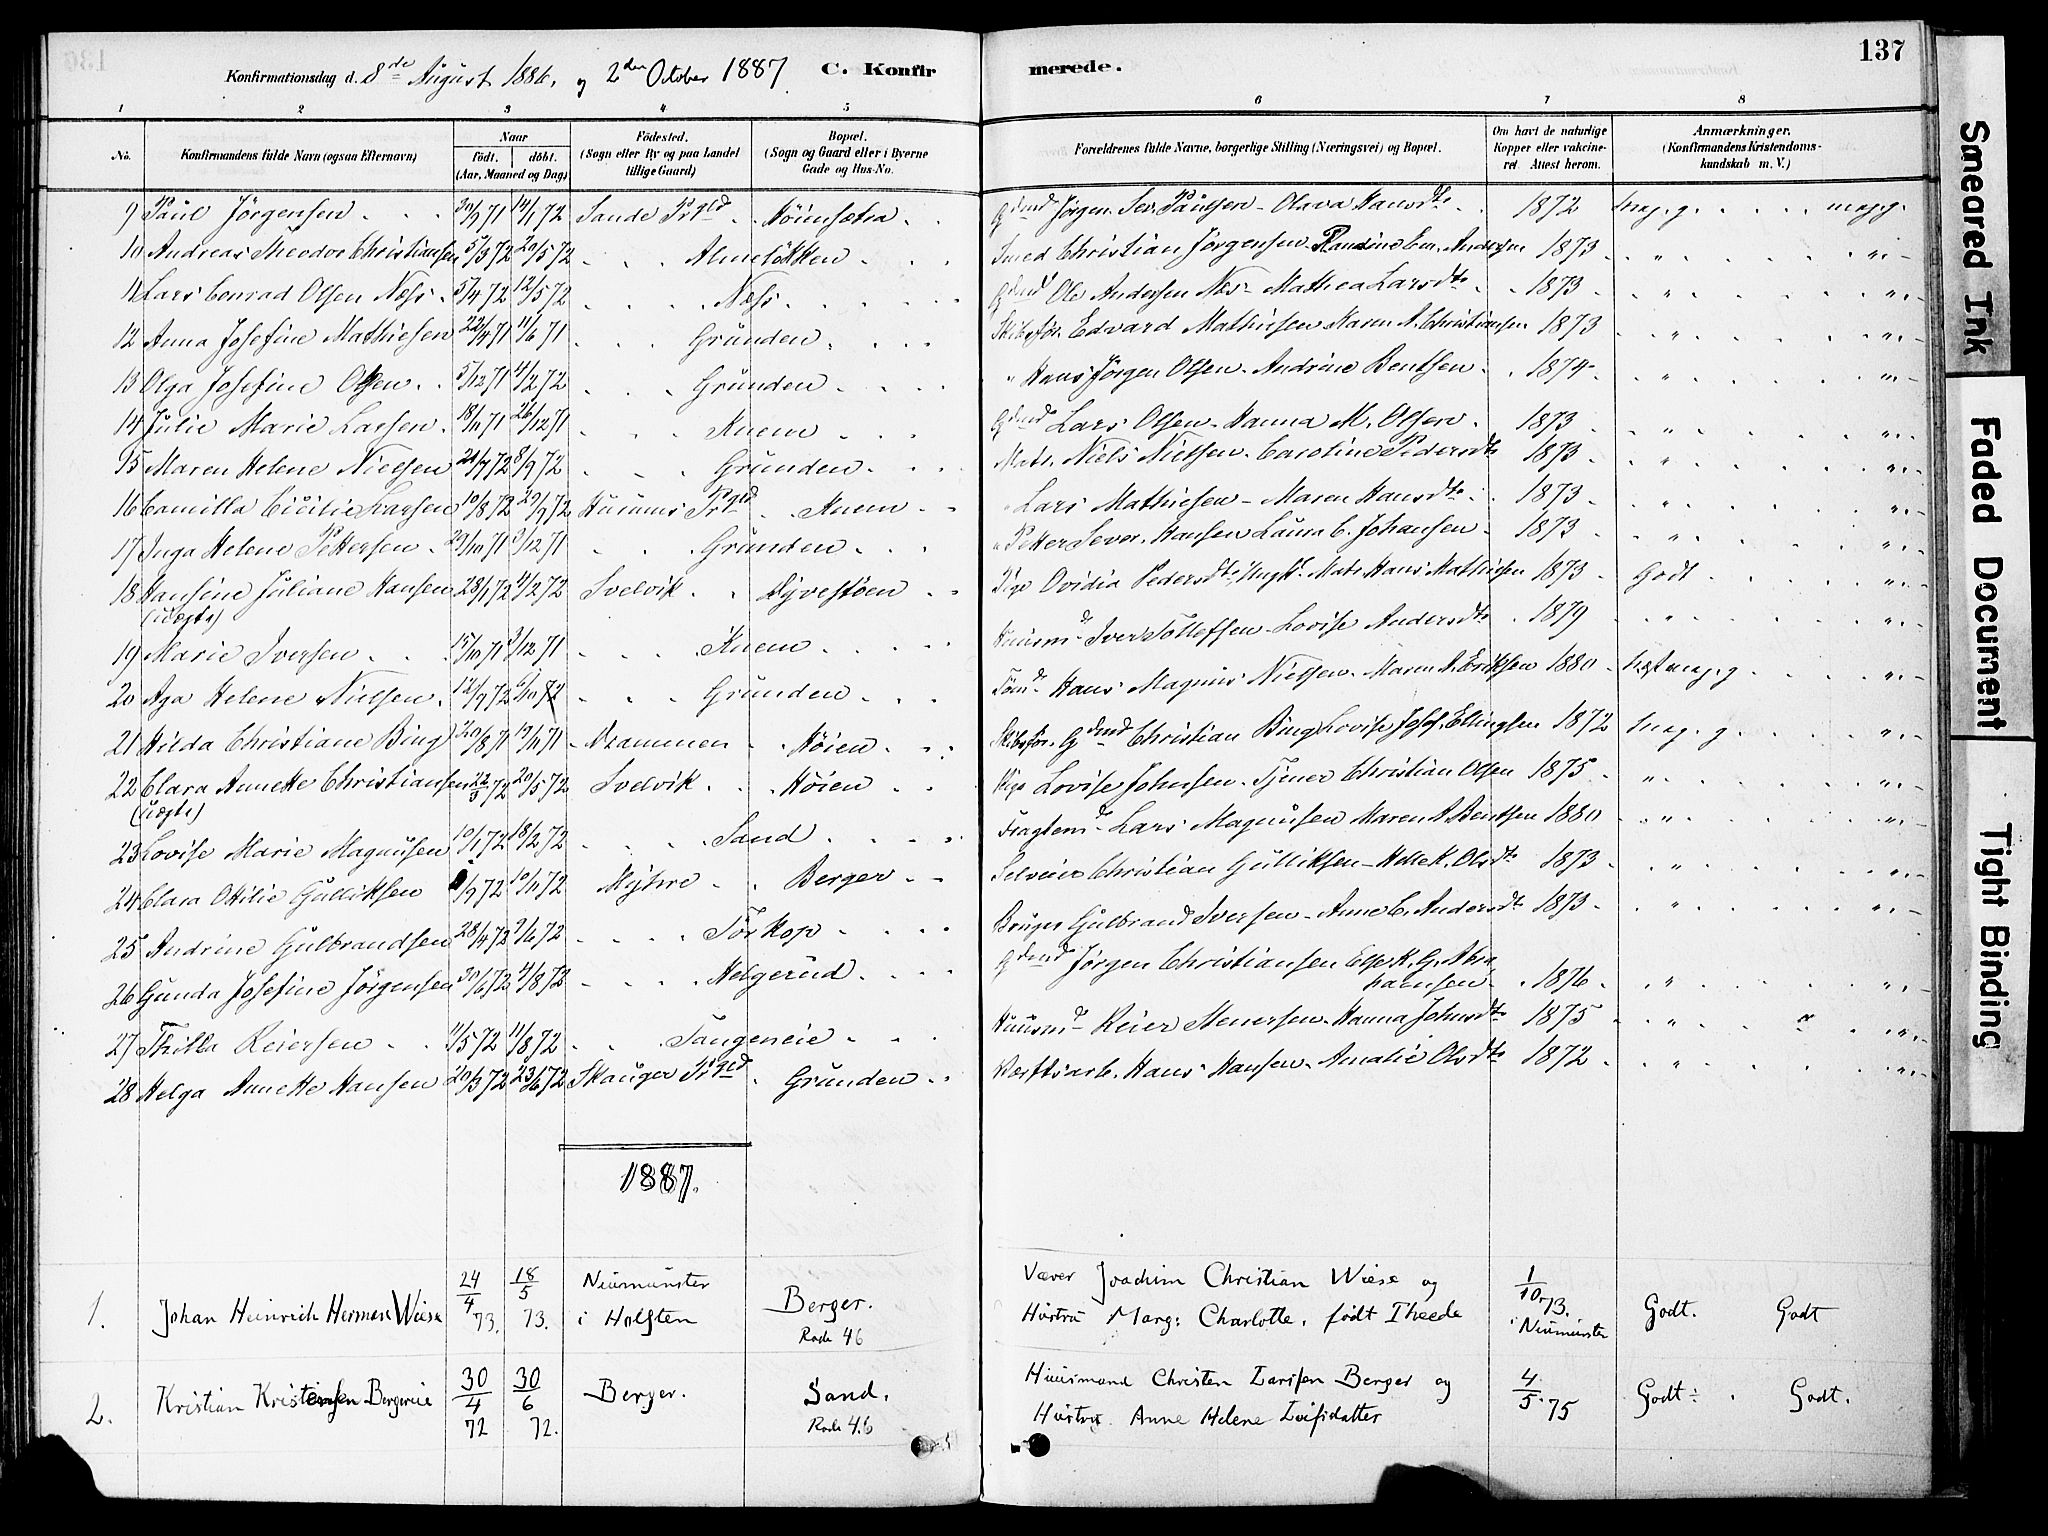 137
Konfirmationsdag d. 8de August 1886, og 2den October 1887 C. Konfir merede.
1 2 3 4 5 6 7 8
No. Konfirmandens fulde Navn (ogsaa Efternavn) Naar født. døbt. (Aar, Maaned og Dag) Fødested. (Sogn eller By og paa Landet tillige Gaard) Bopæl. (Sogn og Gaard eller i Byerne Gade og Hus-No. Forældrenes fulde Navne, borgerlige Stilling (Næringsvei) og Bopæl. Om havt de naturlige Kopper eller vakcineret. Attest herom. Anmærkninger. (Konfirmandens Kristendomskundskab m. V.)
9 Paul Jörgensen 30/9 71 14/1 72 Sande Prgld Höiensætra Gdmd Jörgen Sev. Paulsen - Olava Hansdtr 1872 meg. g. meg. g.
10 Andreas Theodor Christiansen 5/3 72 20/5 72 Almelökken Smed Christian Jörgensen 1873 " "
11 Lars Conrad Olsen Næss 5/4 72 12/5 72 Næss Gdmd Ole Andersen Næs - Mathea Larsdtr 1873 " "
12 Anna Josefine Mathiesen 22/4 71 11/6 71 Grunden Skibsfør. Edvard Mathiesen Maren A. Christiansen 1873 " "
13 Olga Josefine Olsen 5/12 71 4/2 72 Grunden " Hans Jörgen Olsen - Andrine Bentsen 1874 " "
14 Julie Marie Larsen 18/11 71 26/12 71 Knem Gdmd Lars Olsen - Hanna M. Olsen 1873 " "
15 Maren Helene Nielsen 21/7 72 8/9 72 Grunden Matr. Niels Nielsen - Caroline Pedersdtr 1873 " "
16 Camilla Cicilie Larsen 10/8 72 29/9 72 Hurums Prgld Knem " Lars Mathiesen - Maren Hansdtr 1873 " "
17 Inga Helene Pettersen 29/10 71 3/12 71 Grunden " Petter Sever. Hansen Laura C. Johansen 1873 " "
18 Hansine Juliane Hansen 28/1 72 4/2 72 Svelvik Dyvestöen Pige Ovidia Pedersdtr Ungk. Matr. Hans Mathiesen 1873 Godt "
(uægte)
19 Marie Iversen 15/10 71 3/12 71 Knem Huusmd Iver Tollefsen - Lovise Andersdtr 1879 " "
20 Aga Helene Nielsen 12/7 72 6/10 72 Grunden Tömd Hans Magnus Nielsen - Maren A. Eriksen 1880 næst meg. g "
21 Hilda Christiane Bing 20/8 71 19/11 71 Drammen Höien Skibsför. Gdmd Christian Bing Lovise Josef. Ellingsen 1872 meg. g "
22 Clara Annette Christiansen 22/3 72 20/5 72 Svelvik Höien Pige Lovise Johnsen - Tjener Christian Olsen 1875 " "
(uægte)
23 Lovise Marie Magnusen 10/1 72 18/2 72 Sand Fragtemd Lars Magnusen Maren A. Bentsen 1880 " "
24 Clara Otilie Gulliksen /9 72 10/11 72 Myhre Berger Selveier Christian Gulliksen - Helle K. Olsdtr 1873 " "
25 Andrine Gulbrandsen 28/4 72 9/6 72 Törkop Bruger Gulbrand Iversen - Anne C. Andersdtr 1873 " "
26 Gunda Josefine Jörgensen 30/6 72 4/8 72 Helgerud Gdmd Jörgen Christiansen Else K. G. Abra
hamsen 1876 " "
27 Thilla Reiersen 11/5 72 11/8 72 Tangeneie Huusmd Reier Stenersen - Hanna Johnsdtr 1875 " "
28 Helga Annette Hansen 20/3 72 23/6 72 Skauger Prgld Grunden Værftsarb. Hans Hansen - Amalie Olsdtr 1872 " "
1887.
1. Johan Heinrich Herman Wiese 24/4 73. 18/5 73. Neumünster i Holsten Berger. Rode 46 Væver Joachim Christian Wiese og
Hustru Marg: Charlotte, født Theede 1/10 73. i Neumünster Godt. Godt
2. Kristian Kristensen Bergereie 30/4 72 30/6 72. Berger. Sand. Rode 46 Huusmand Christen Larssen Berger og
Hustru Anne Helene Leifsdatter 4/5 75 Godt Godt.
Smeared Ink
Faded Document
Tight Binding